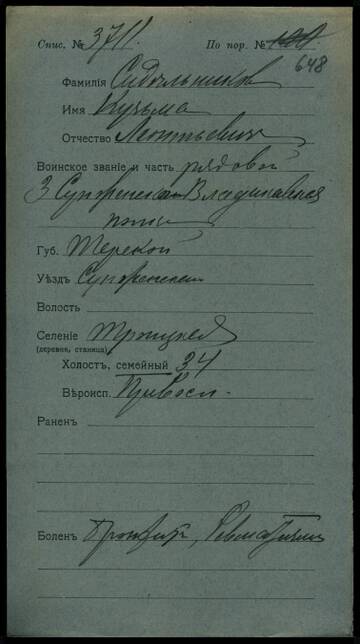 Спис. № 3711. По пор. №
648
Фамилія Сидѣльников
Имя Кузьма
Отчество Леонтьевич
Воинское званіе и часть рядовой
3 Сунженско-Владикавказ
полка
Губ. Терской
Уѣздъ Сунженск
Волость
Селеніе Троицкая
(деревня, станица)
Холостъ, семейный 34
Вѣроисп. Правосл.
Раненъ
Боленъ Бронхит, Ревматизм